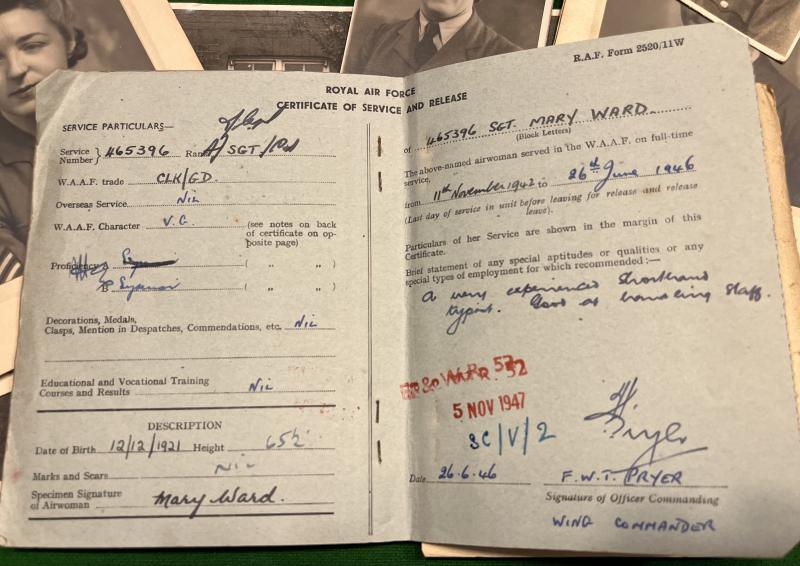 ROYAL AIR FORCE
CERTIFICATE OF SERVICE AND RELEASE
SERVICE PARTICULARS—
Service Number } 465396 Rank A/SGT/Pd
W.A.A.F. trade CLK/GD.
Overseas Service NIL
W.A.A.F. Character V.G. (see notes on back
of certificate on op-
posite page)
Proficiency ( „ „ )
( „ „ )
Decorations, Medals,
Clasps, Mention in Despatches, Commendations, etc. NIL
Educational and Vocational Training
Courses and Results NIL
DESCRIPTION
Date of Birth 12/12/1921 Height 65½"
Marks and Scars NIL
Specimen Signature
of Airwoman Mary Ward.
R.A.F. Form 2520/11W
of 465396 SGT. MARY WARD
(Block Letters)
The above-named airwoman served in the W.A.A.F. on full-time
service,
from 11th November 1942 to 26th June 1946
(Last day of service in unit before leaving for release and release
leave).
Particulars of her Service are shown in the margin of this
Certificate.
Brief statement of any special aptitudes or qualities or any
special types of employment for which recommended:—
A very experienced shorthand
typist. Good at handling staff.
5 NOV 1947
3C/V/2
Date 26.6.46 F.W.T. PRYER
Signature of Officer Commanding
WING COMMANDER